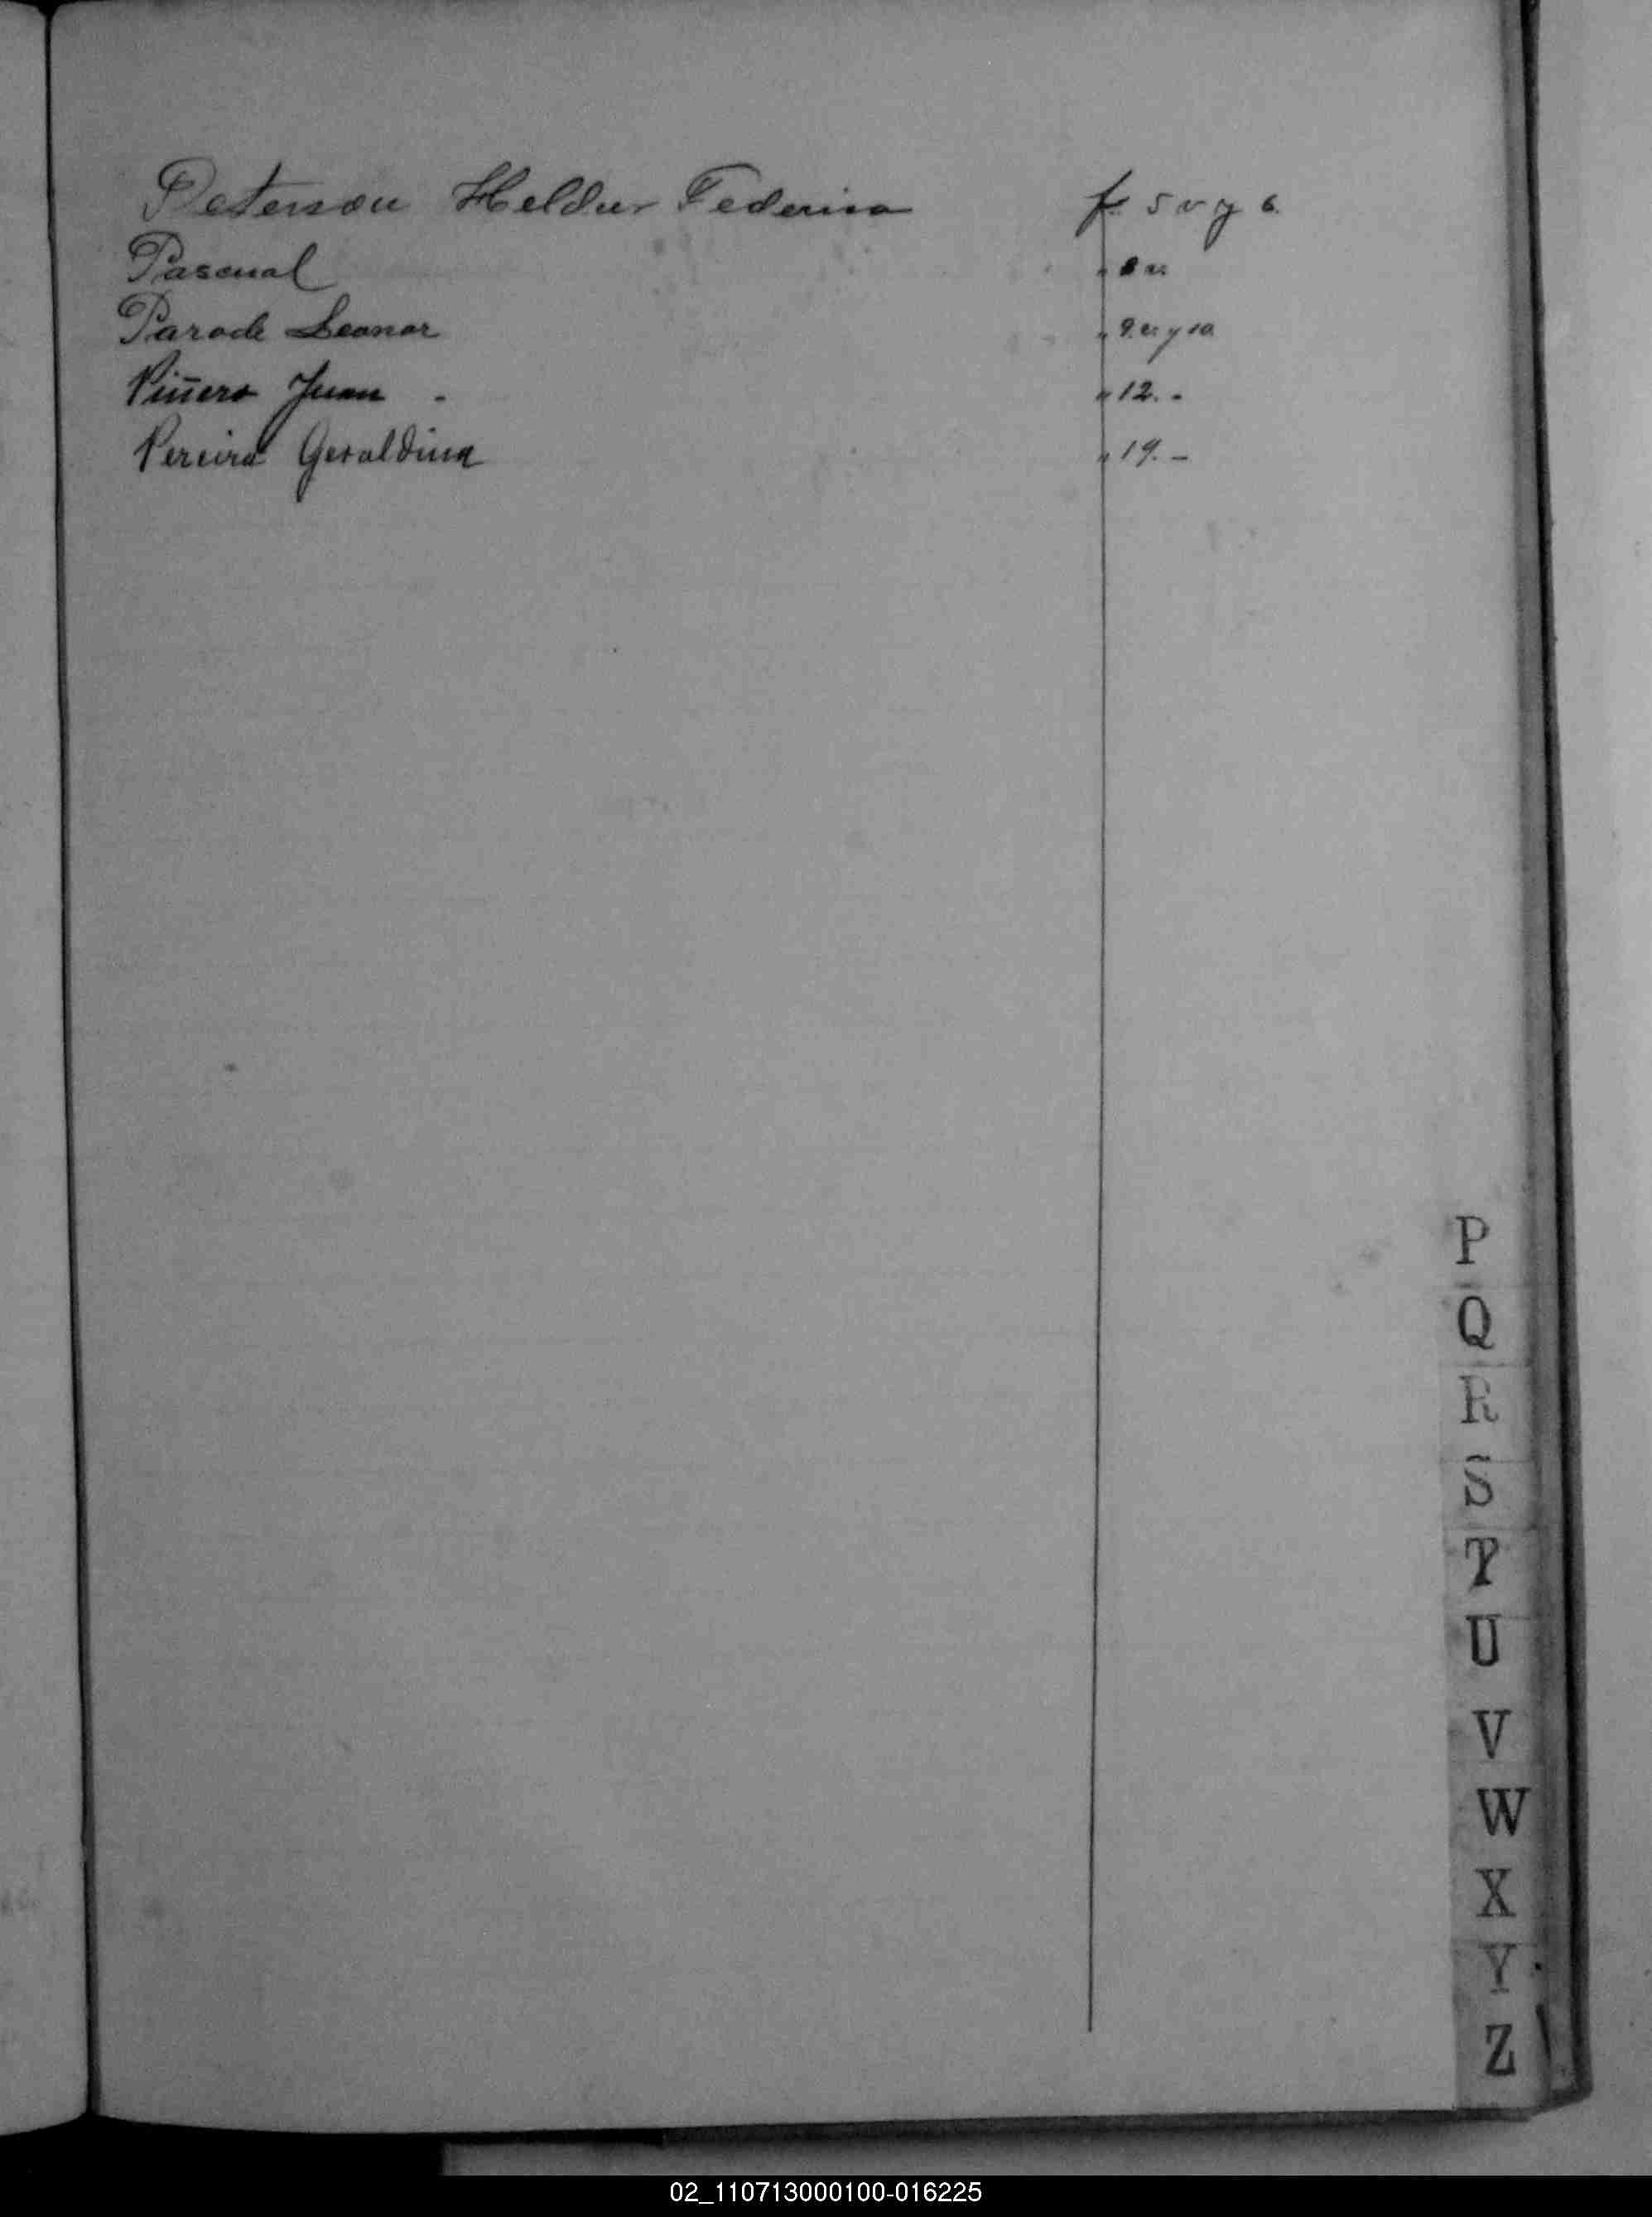 Peterson Heldur Federico f. 5 v y 6.
Pascual " 8 v.
Parode Leonor " 9. v. y 10
Piñero Juan - " 12. -
Pereira Geraldina " 19. -
P
Q
R
S
T
U
V
W
X
Y
Z
02_110713000100-016225